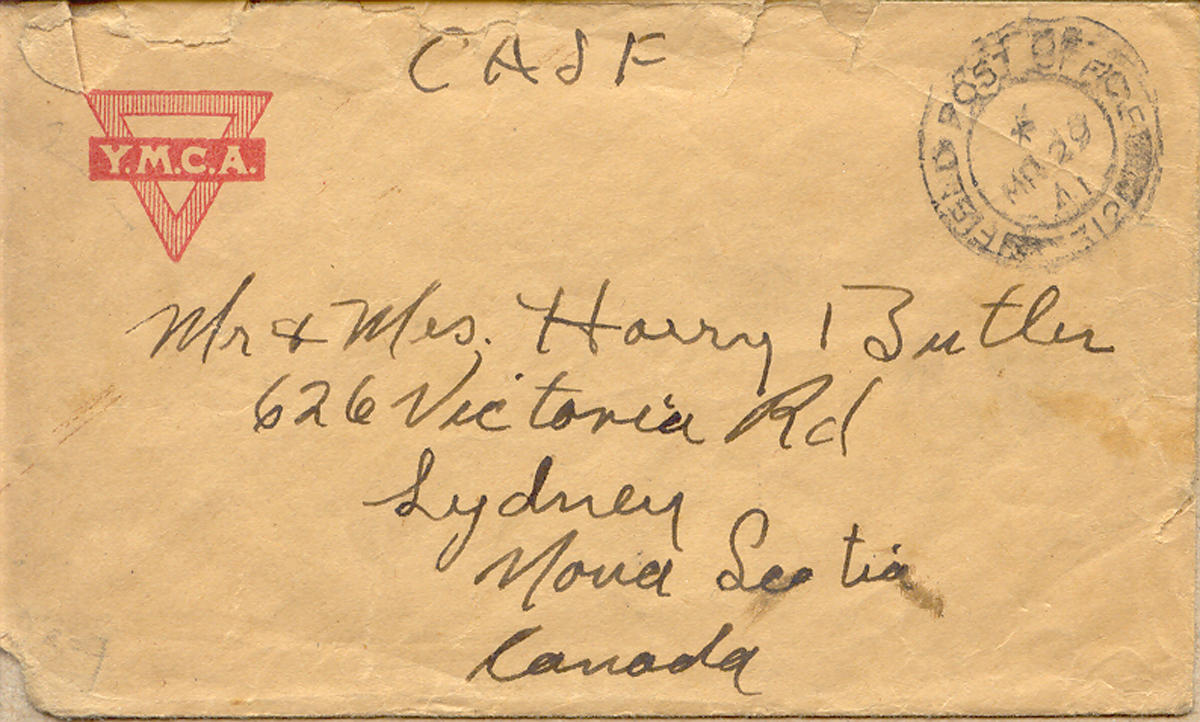 CASF
Y.M.C.A.
FIELD POST OFFICE 312
MR 29
41
Mr & Mrs. Harry Butler
626 Victoria Rd
Sydney
Nova Scotia
Canada